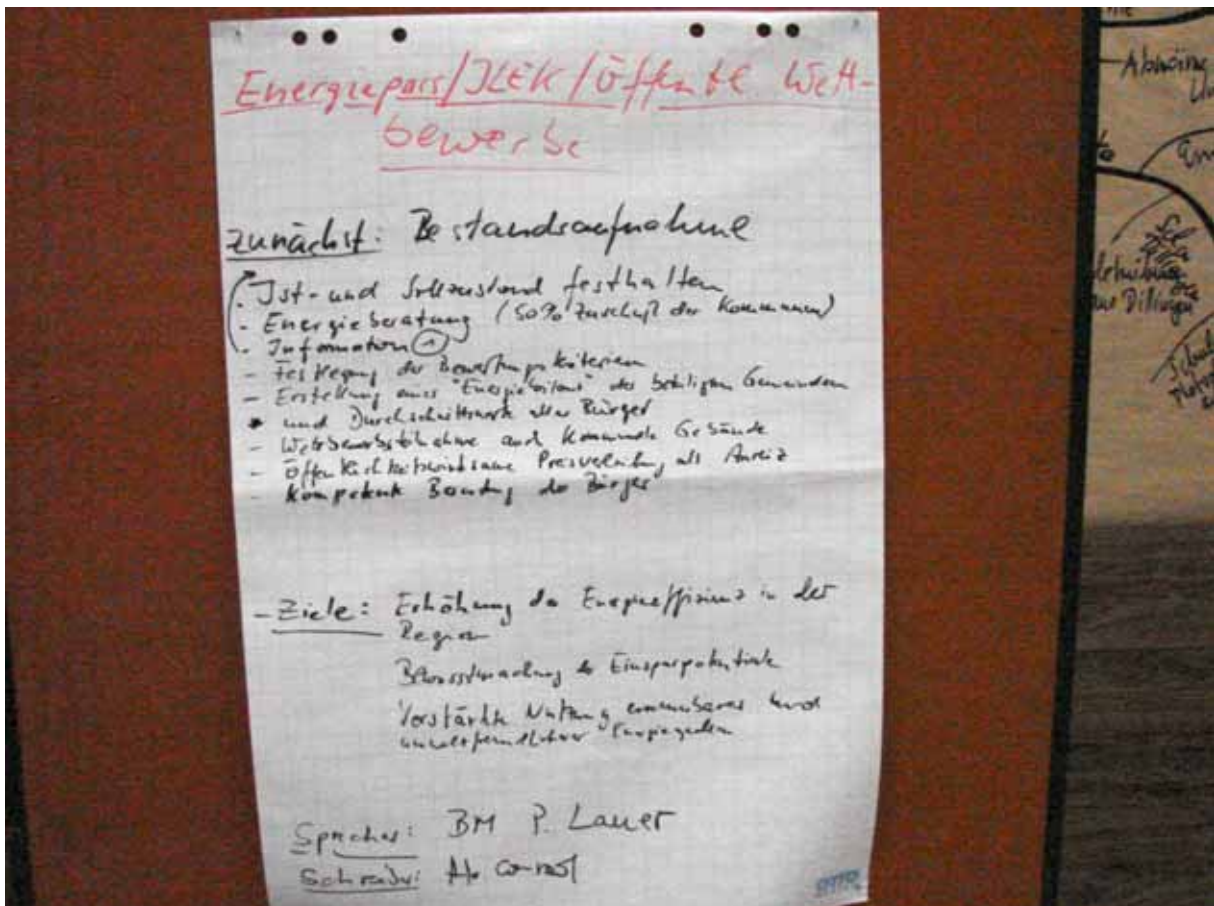 Energiepass/ILEK/Öffentl. Wett-
bewerbe
zunächst: Bestandsaufnahme
. Ist- und Sollzustand festhalten
- Energieberatung (50% Zuschuß der Kommunen)
. Information 1
- Festlegung der Bewertungskriterien
- Erstellung einer "Energiebilanz" der beteiligten Gemeinden
und Durchschnittswerte aller Bürger
- Wettbewerbsteilnahme auch kommunale Gebäude
- Öffentlichkeitswirksame Preisverleihung als Anreiz
- Kompetente Beratung der Bürger
- Ziele: Erhöhung der Energieeffizienz in der
Region
Bewusstmachung der Einsparpotentiale
Verstärkte Nutzung erneuerbarer und
umweltfreundlicher Energiequellen
Sprecher: BM P. Lauer
Schreiber:
Dillingen